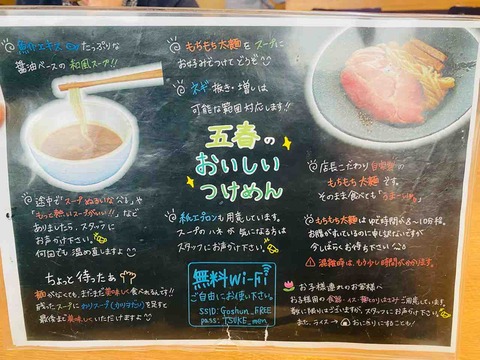 魚介エキスたっぷりな
醤油ベースの和風スープ!!
もちもち太麺をスープに
お好みでつけてどうぞ
ネギ抜き・増しは
可能な範囲対応します!!
五春の
おいしい
つけめん
店長こだわり自家製の
もちもち太麺です。
そのまま食べても「うま〜い」
途中で"スープぬるいな"や
"もっと熱いスープがいい!!"など
ありましたら、スタッフに
お声がけ下さい。
何回でも温め直しますよ
紙エプロンも用意しています。
スープのハネが気になる方は
スタッフにお声がけ下さい。
もちもち太麺はゆで時間が8〜10分程。
お腹が空いているのに申し訳ないですが
今しばらくお待ち下さい
混雑時は、もう少し時間がかかります。
ちょっと待ったぁ
麺がなくても、まだまだ美味しく食べれるんです!!
残ったスープにわりスープ(カツオだし)を足すと
最後まで美味しくいただけますよ
無料Wi-Fi
ご自由にお使い下さい。
SSID: Goshun_FREE
pass: TSUKE_men
お子様連れのお客様へ
お子様用の食器・イス・麺切りはさみご用意しています。
数に限りはございますが、スタッフにお声がけ下さい。
また、ライス→おにぎりにすることも!